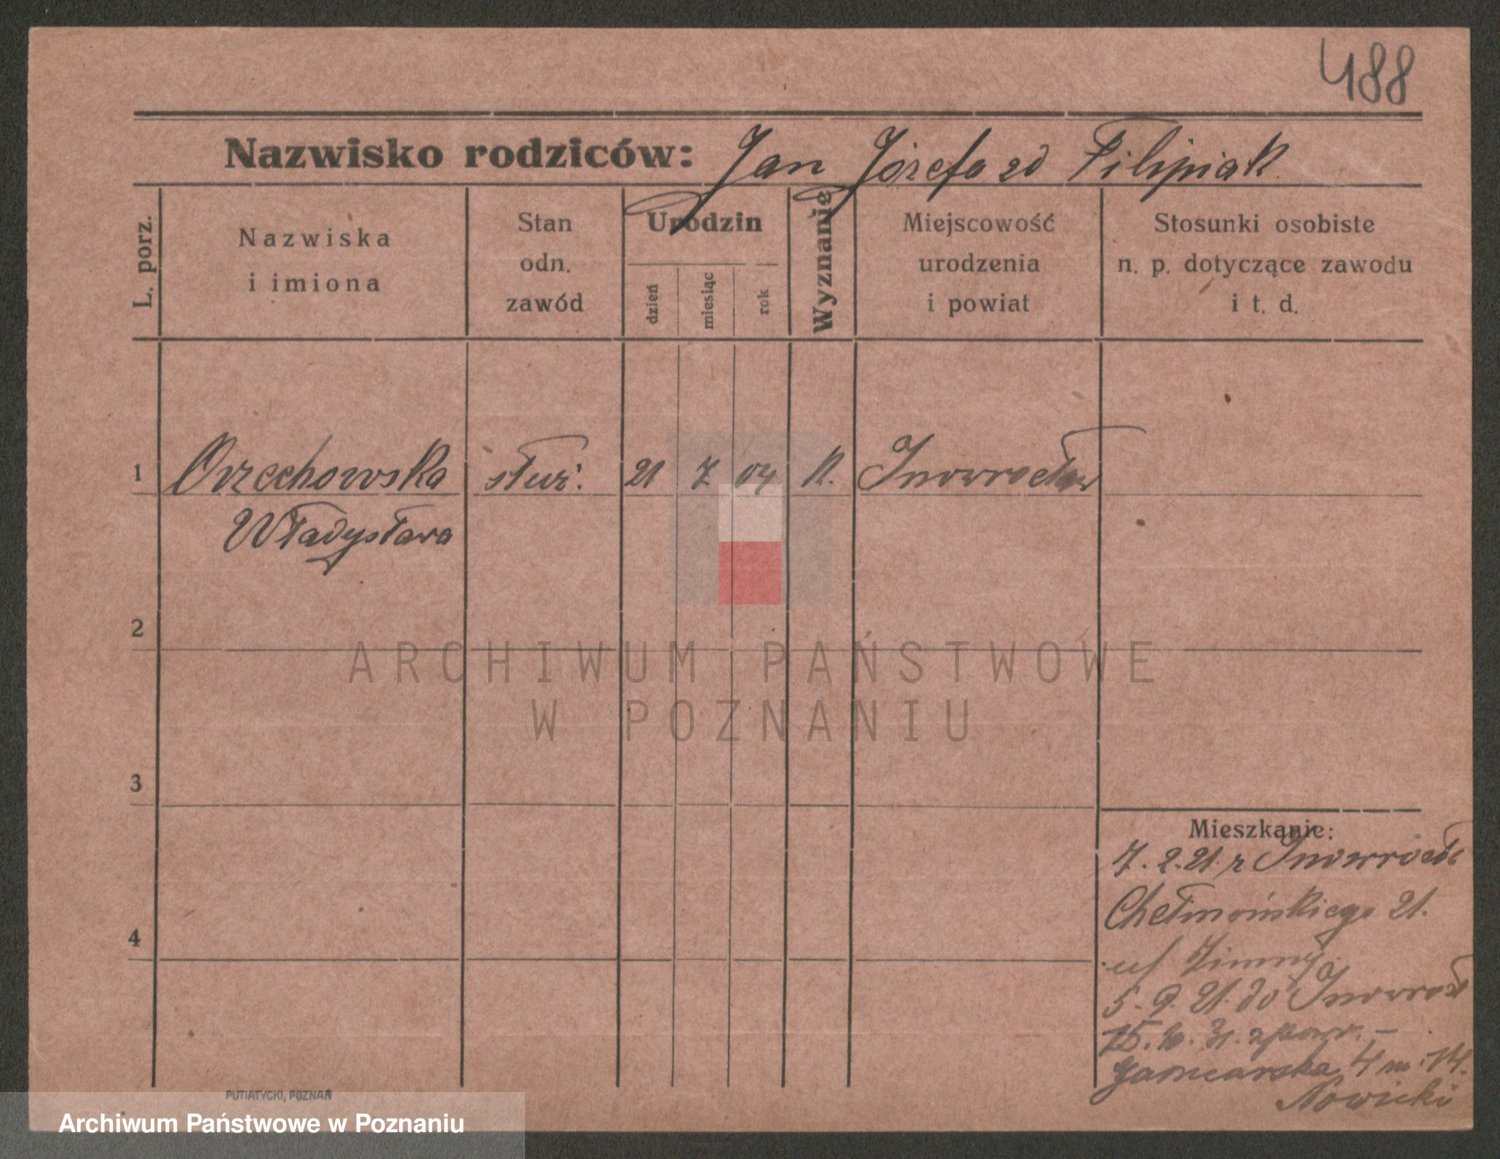 488
Nazwisko rodziców: Jan Józefa zd Filipiak
L. porz.
Nazwiska
i imiona
Stan
odn.
zawód
Urodzin
dzień
miesiąc
rok
Wyznanie
Miejscowość
urodzenia
i powiat
Stosunki osobiste
n. p. dotyczące zawodu
i t. d.
1 Orzechowska służ. 21 7 04 K. Inowrocław
Władysława
2
ARCHIWUM PAŃSTWOWE
W POZNANIU
3
Mieszkanie:
7. 2. 21. z Inowrocł
Chełmońskiego 21.
4
u/ Zimny
5. 9. 21. do Inowrocł
15. 10. 31. z powr. –
Garncarska 4 m. 14.
Nowicki
PUTIATYCKI, POZNAŃ
Archiwum Państwowe w Poznaniu